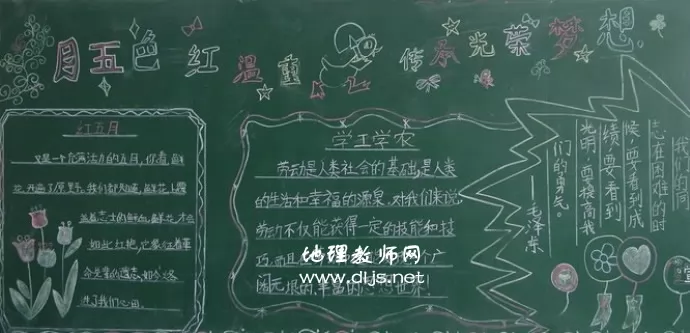 月五色红温重 传承光荣梦想
红五月
又是一个充满活力的五月，你看，鲜
花开遍了原野，我们都知道，鲜花上覆
盖着志士的鲜血，鲜花才会
如此红艳，它象征着革
命先辈的遗志，如今
进了我们心田。
学工学农
劳动是人类社会的基础，是人类
的生活和幸福的源泉，对我们来说，
劳动不仅能获得一定的技能和技
巧，而且 个广
阔无垠的，丰富的 世界.
我们的同
志在困难的时
候，要看到成
绩，要看到
光明，要提高我
们的勇气。
——毛泽东
地理教师网
www.dljs.net